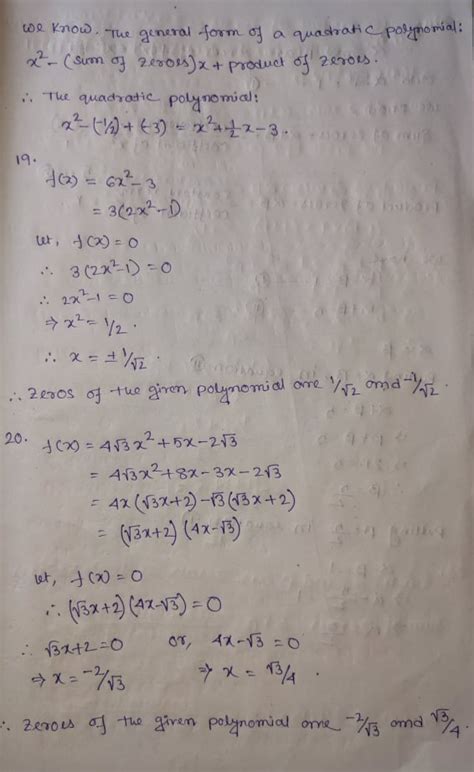 we know. The general form of a quadratic polynomial:
x² - (sum of zeroes)x + product of zeroes.
∴ The quadratic polynomial:
x² - (-1/2) + (-3) = x² + 1/2 x - 3.
19.
f(x) = 6x² - 3
= 3(2x² - 1)
let, f(x) = 0
∴ 3(2x² - 1) = 0
∴ 2x² - 1 = 0
⇒ x² = 1/2.
∴ x = ± 1/√2.
∴ Zeros of the given polynomial are 1/√2 and -1/√2.
20. f(x) = 4√3x² + 5x - 2√3
= 4√3x² + 8x - 3x - 2√3
= 4x(√3x+2) - √3(√3x+2)
= (√3x+2)(4x-√3)
let, f(x) = 0
∴ (√3x+2)(4x-√3) = 0
∴ √3x+2 = 0 or, 4x-√3 = 0
⇒ x = -2/√3 ⇒ x = √3/4.
∴ Zeroes of the given polynomial are -2/√3 and √3/4.